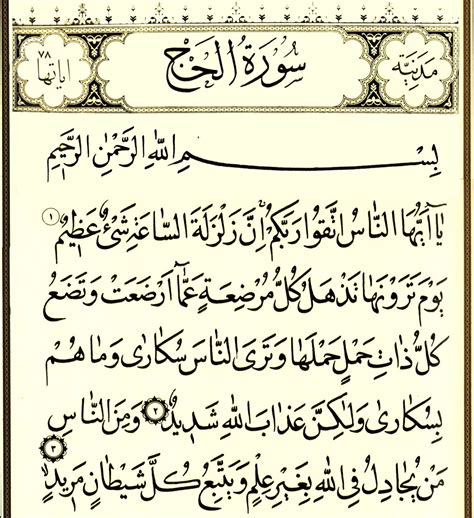 مدنية سورة الحج آياتها ٧٨
بِسْمِ اللَّهِ الرَّحْمٰنِ الرَّحِيمِ
يَا أَيُّهَا النَّاسُ اتَّقُوا رَبَّكُمْ إِنَّ زَلْزَلَةَ السَّاعَةِ شَيْءٌ عَظِيمٌ ١
يَوْمَ تَرَوْنَهَا تَذْهَلُ كُلُّ مُرْضِعَةٍ عَمَّا أَرْضَعَتْ وَتَضَعُ
كُلُّ ذَاتِ حَمْلٍ حَمْلَهَا وَتَرَى النَّاسَ سُكَارٰى وَمَا هُمْ
بِسُكَارٰى وَلٰكِنَّ عَذَابَ اللَّهِ شَدِيدٌ ٢ وَمِنَ النَّاسِ
مَنْ يُجَادِلُ فِي اللَّهِ بِغَيْرِ عِلْمٍ وَيَتَّبِعُ كُلَّ شَيْطَانٍ مَرِيدٍ ٣